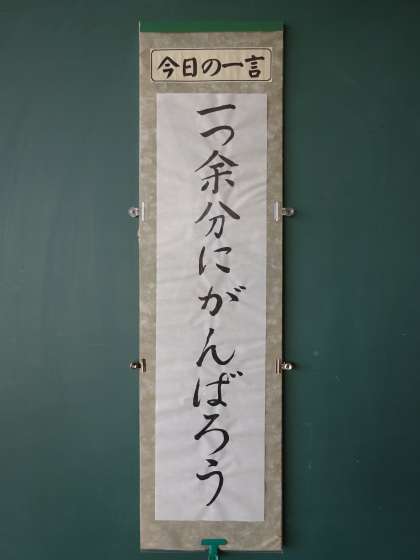 今日の一言
一つ余分にがんばろう